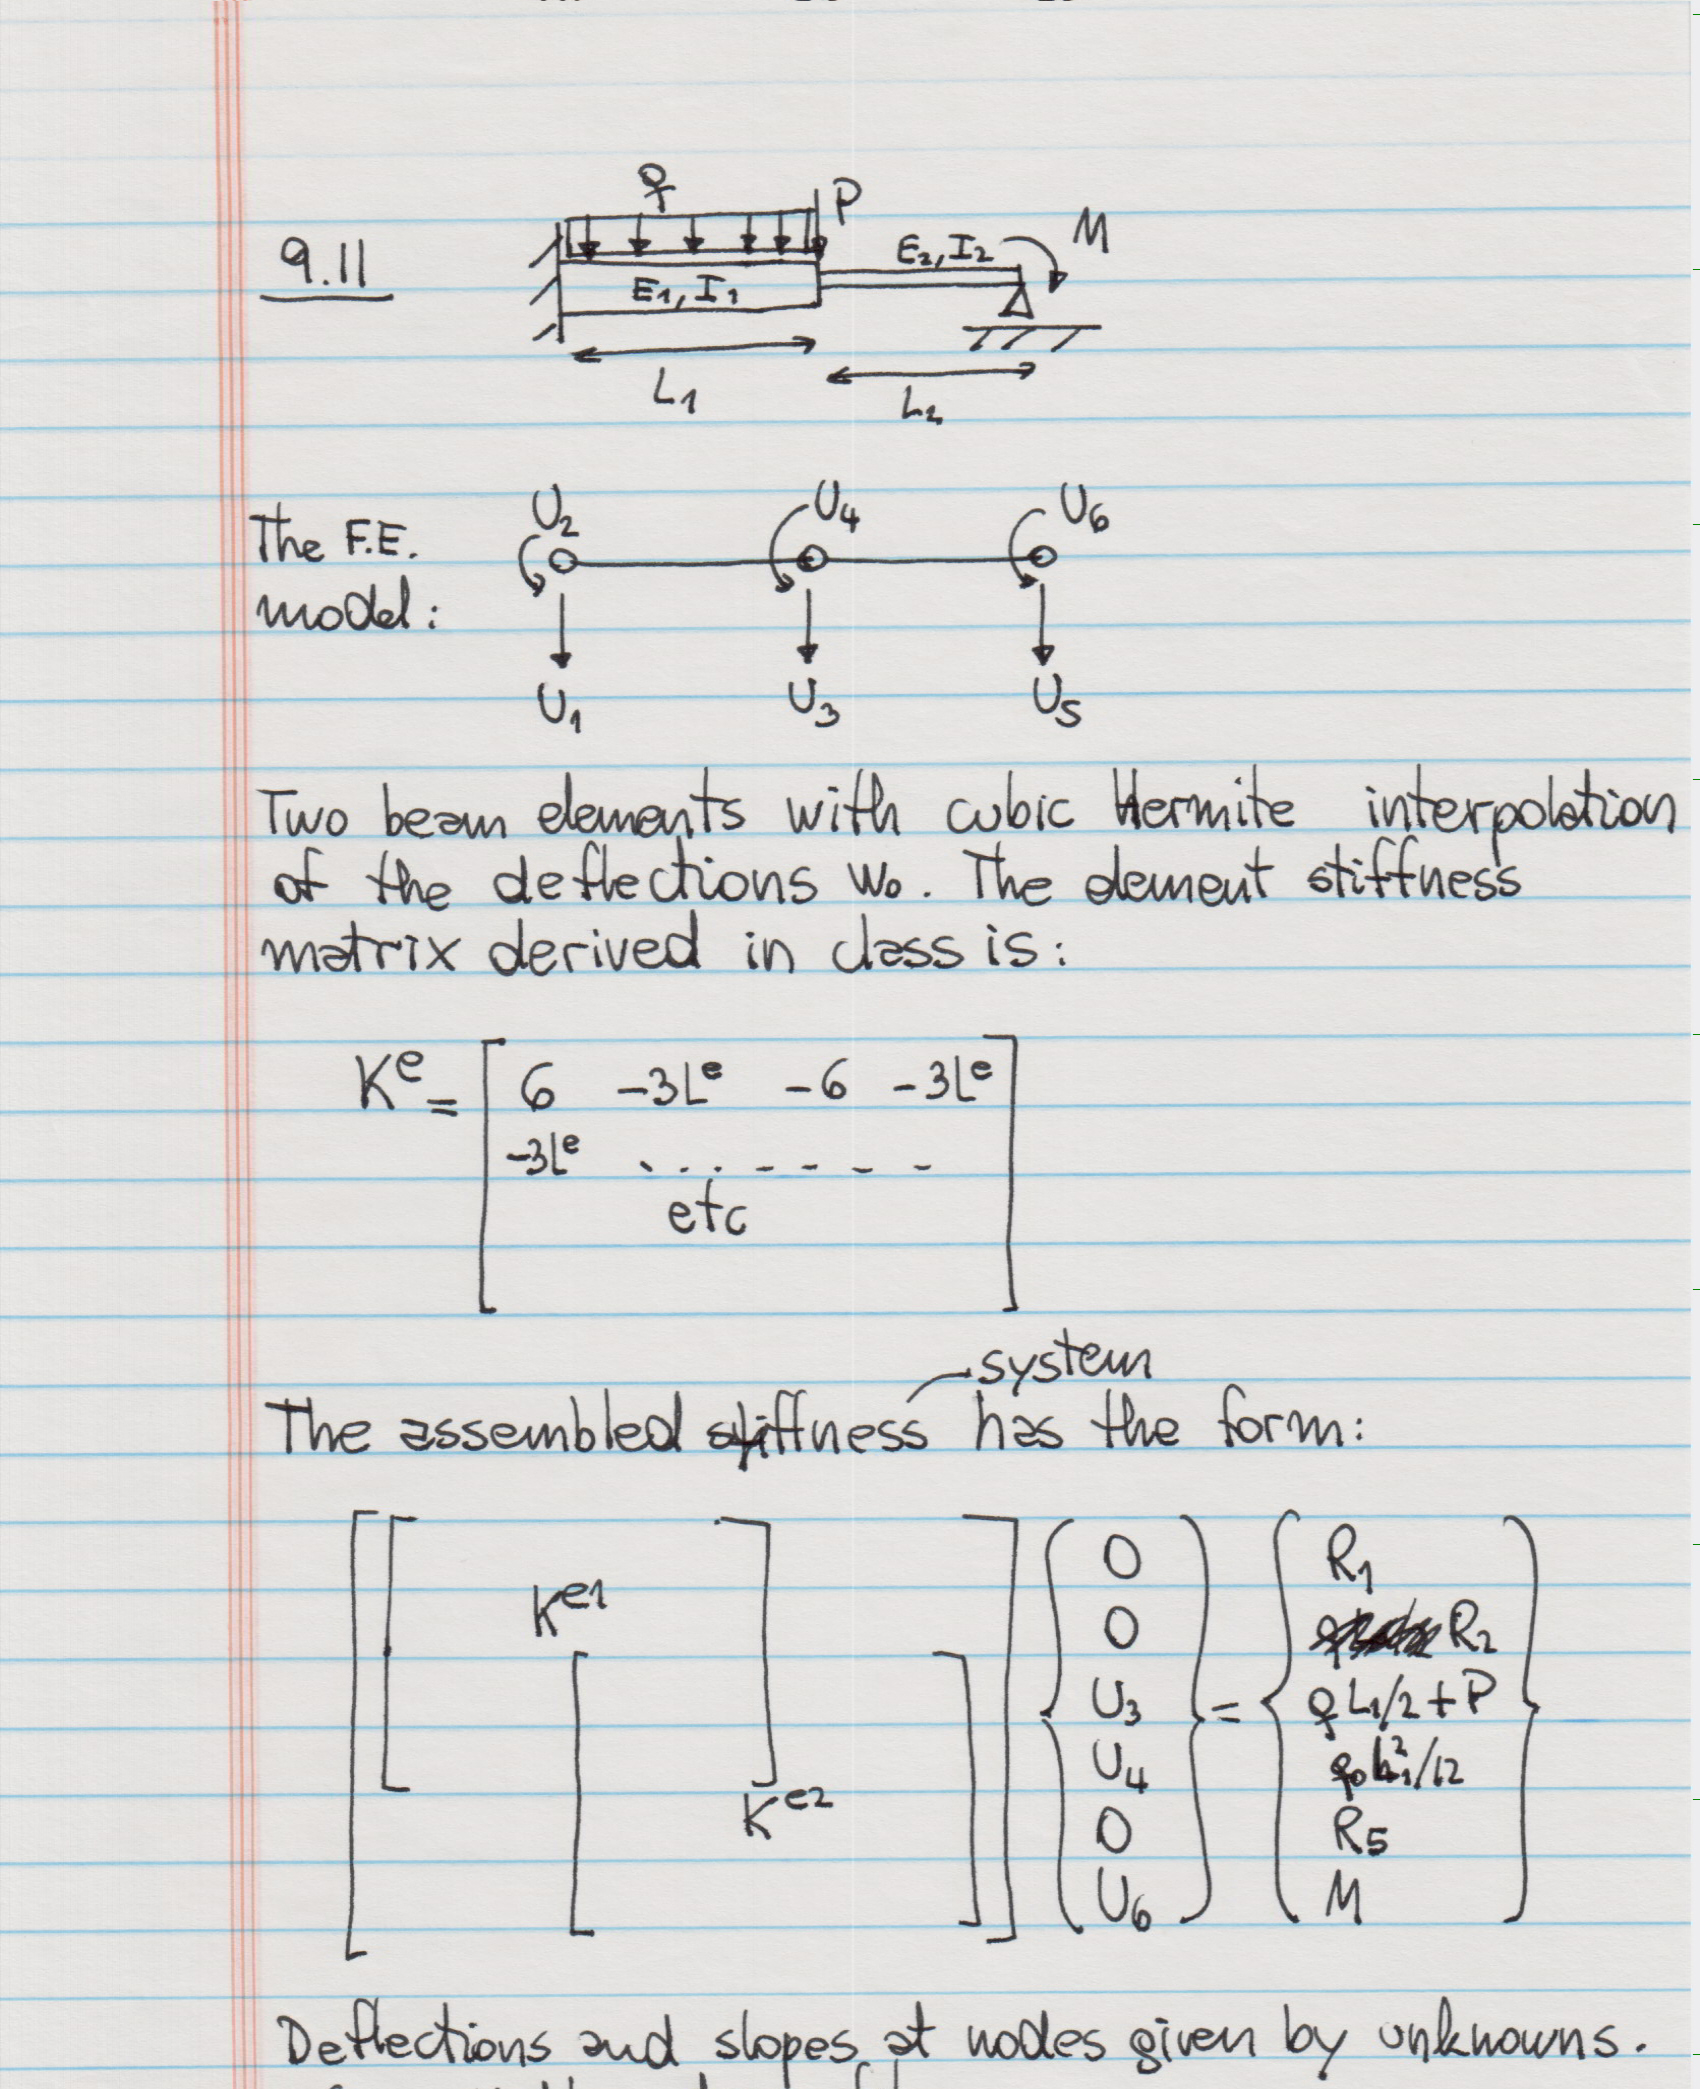 q P
9.11
E1, I1 E2, I2 M
L1 L2
The F.E. model:
U2 U4 U6
U1 U3 U5
Two beam elements with cubic Hermite interpolation
of the deflections wo. The element stiffness
matrix derived in class is:
K^e = [ 6 -3L^e -6 -3L^e
-3L^e . . . - - - -
etc ]
system
The assembled stiffness has the form:
[ K^e1 K^e2 ]
{ 0 0 U3 U4 0 U6 } = { R1 R2 qL1/2+P q0L1²/12 R5 M }
Deflections and slopes at nodes given by unknowns.